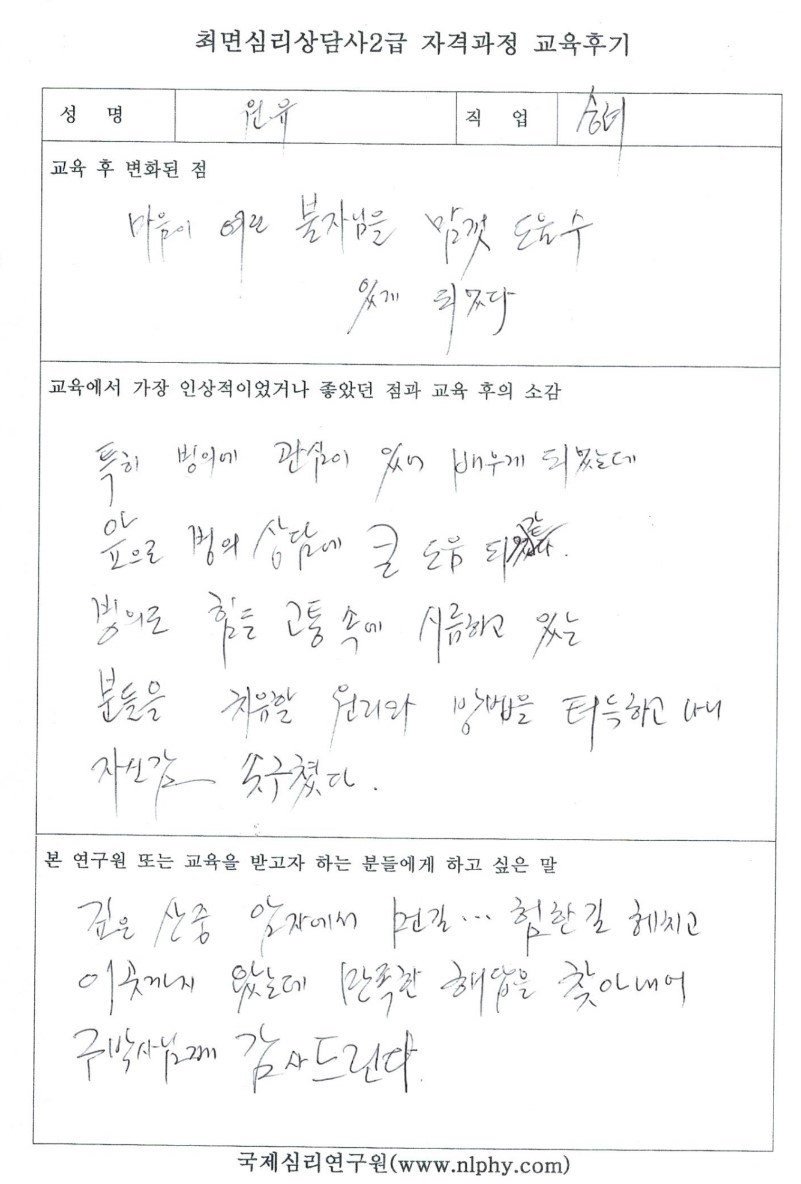 최면심리상담사2급 자격과정 교육후기
성 명 원유 직 업 승려
교육 후 변화된 점
마음이 여린 불자님을 맘껏 도울수
있게 되었다
교육에서 가장 인상적이었거나 좋았던 점과 교육 후의 소감
특히 빙의에 관심이 있어 배우게 되었는데
앞으로 빙의 상담에 큰 도움 될
빙의로 힘든 고통 속에 시름하고 있는
분들을 치유할 원리와 방법을 터득하고 나니
자신감 솟구쳤다.
본 연구원 또는 교육을 받고자 하는 분들에게 하고 싶은 말
깊은 산중 암자에서 먼길... 험한길 헤치고
이곳까지 왔는데 만족한 해답을 찾아내어
구박사님께 감사드린다.
국제심리연구원(www.nlphy.com)